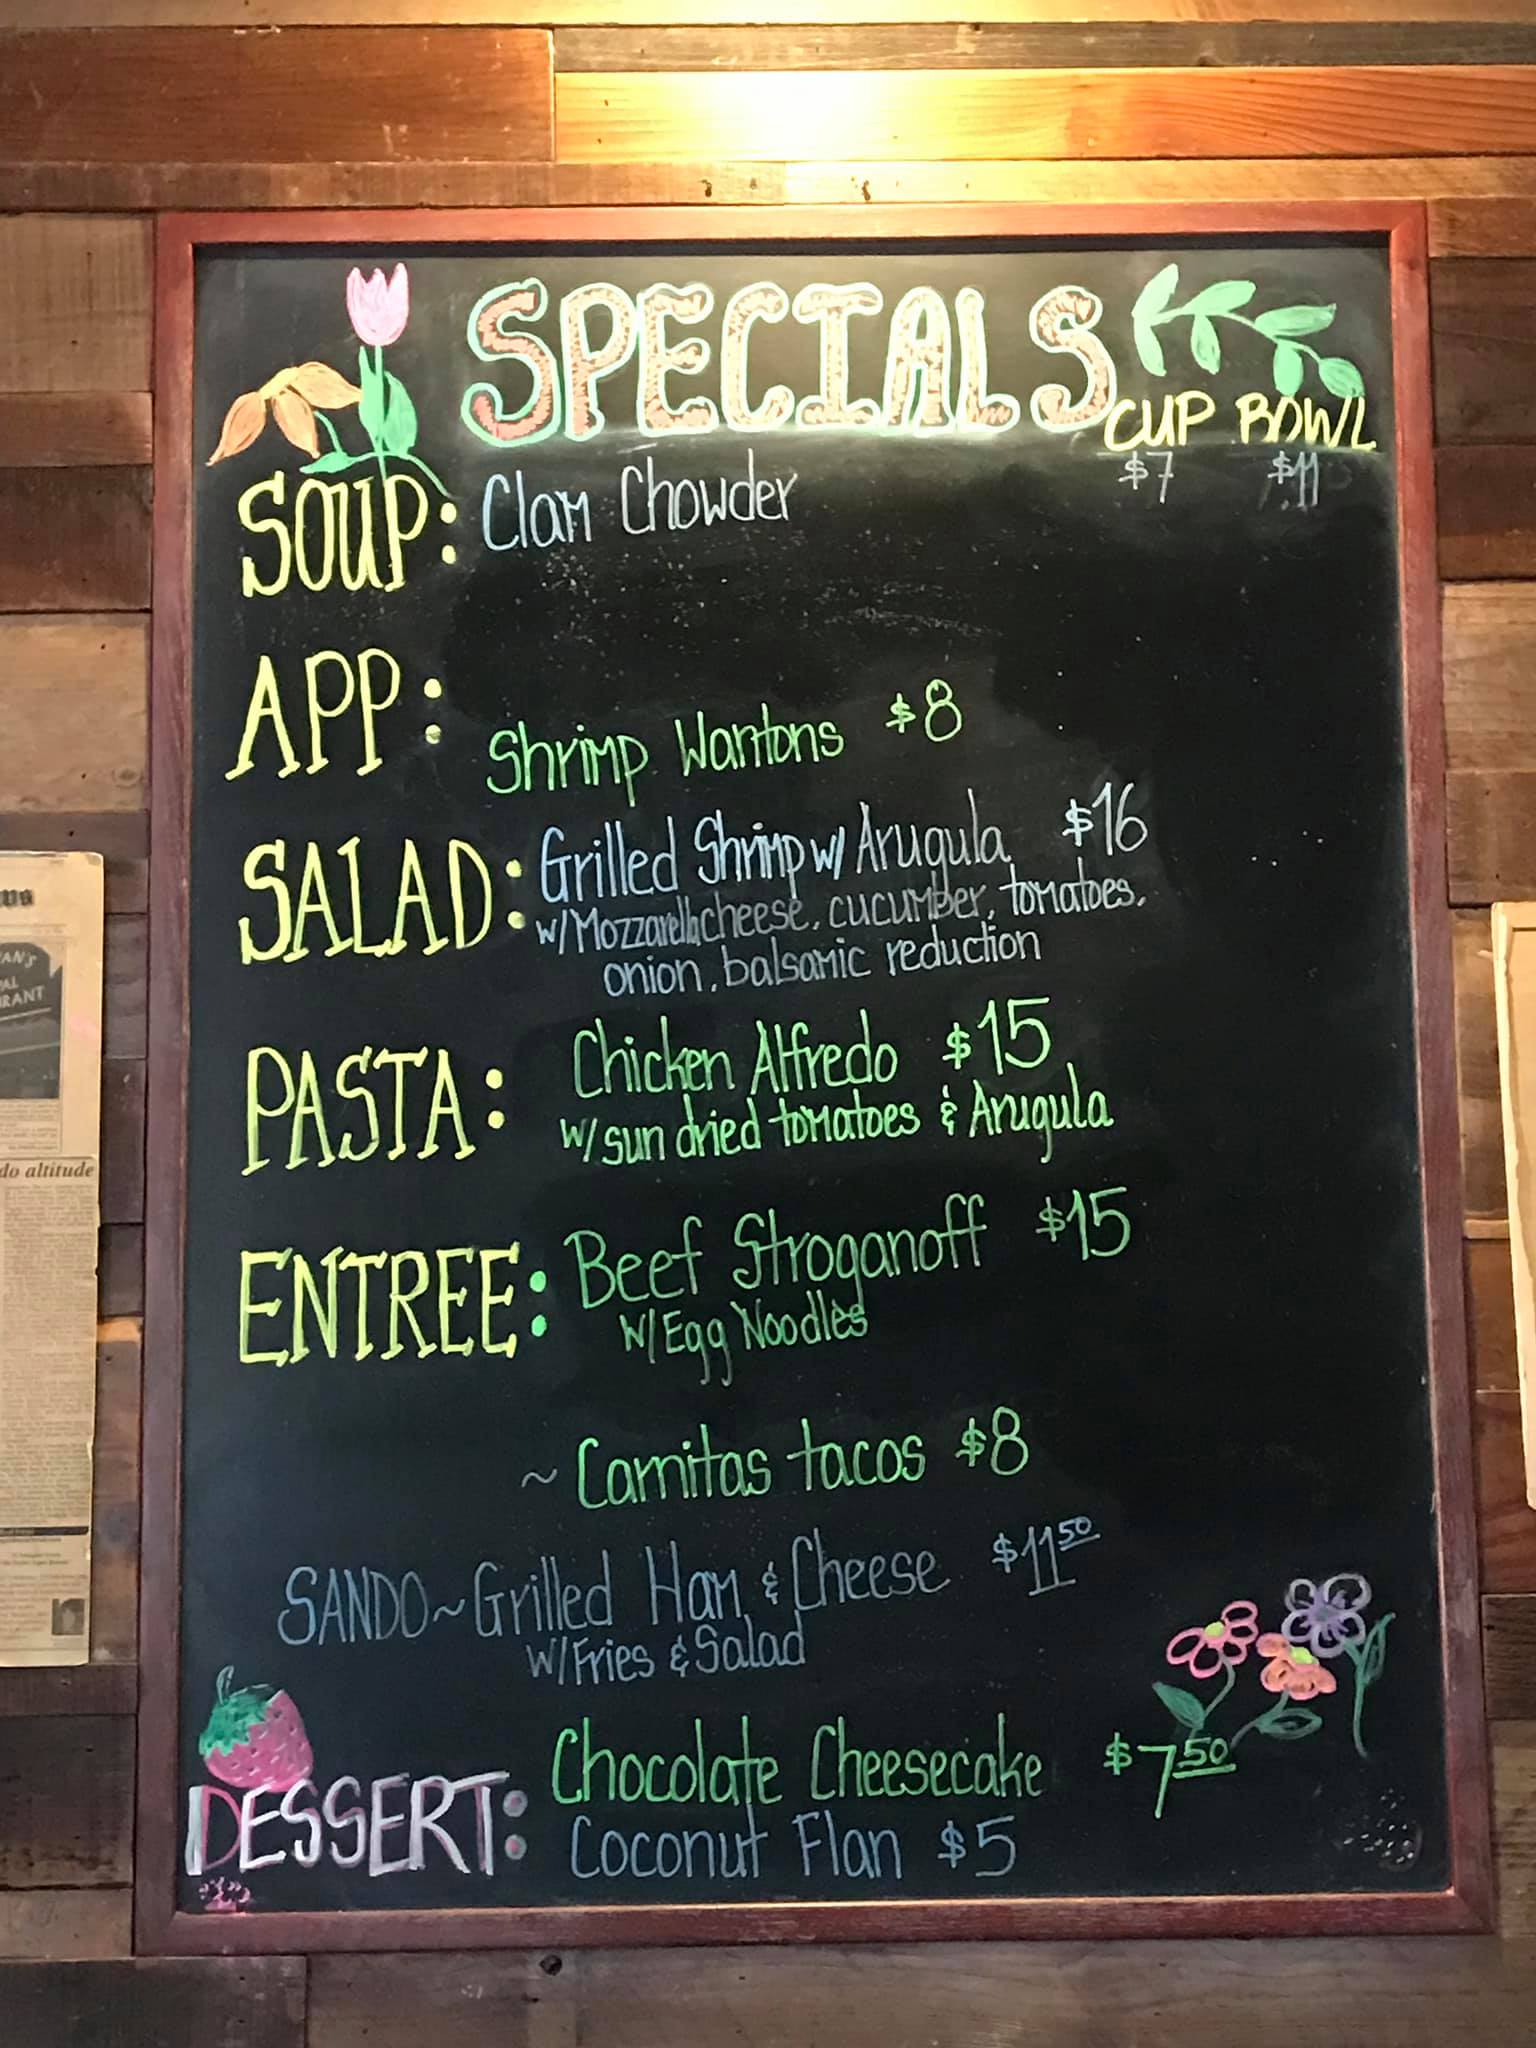 SPECIALS
CUP BOWL
SOUP: Clam Chowder $7 $11
APP: Shrimp Wantons $8
SALAD: Grilled Shrimp w/ Arugula $16
w/ Mozzarella cheese, cucumber, tomatoes,
onion, balsamic reduction
PASTA: Chicken Alfredo $15
w/ sun dried tomatoes & Arugula
ENTREE: Beef Stroganoff $15
w/ Egg Noodles
~ Carnitas tacos $8
SANDO ~ Grilled Ham & Cheese $11.50
w/ Fries & Salad
DESSERT: Chocolate Cheesecake $7.50
Coconut Flan $5
AN'S
RANT
do altitude